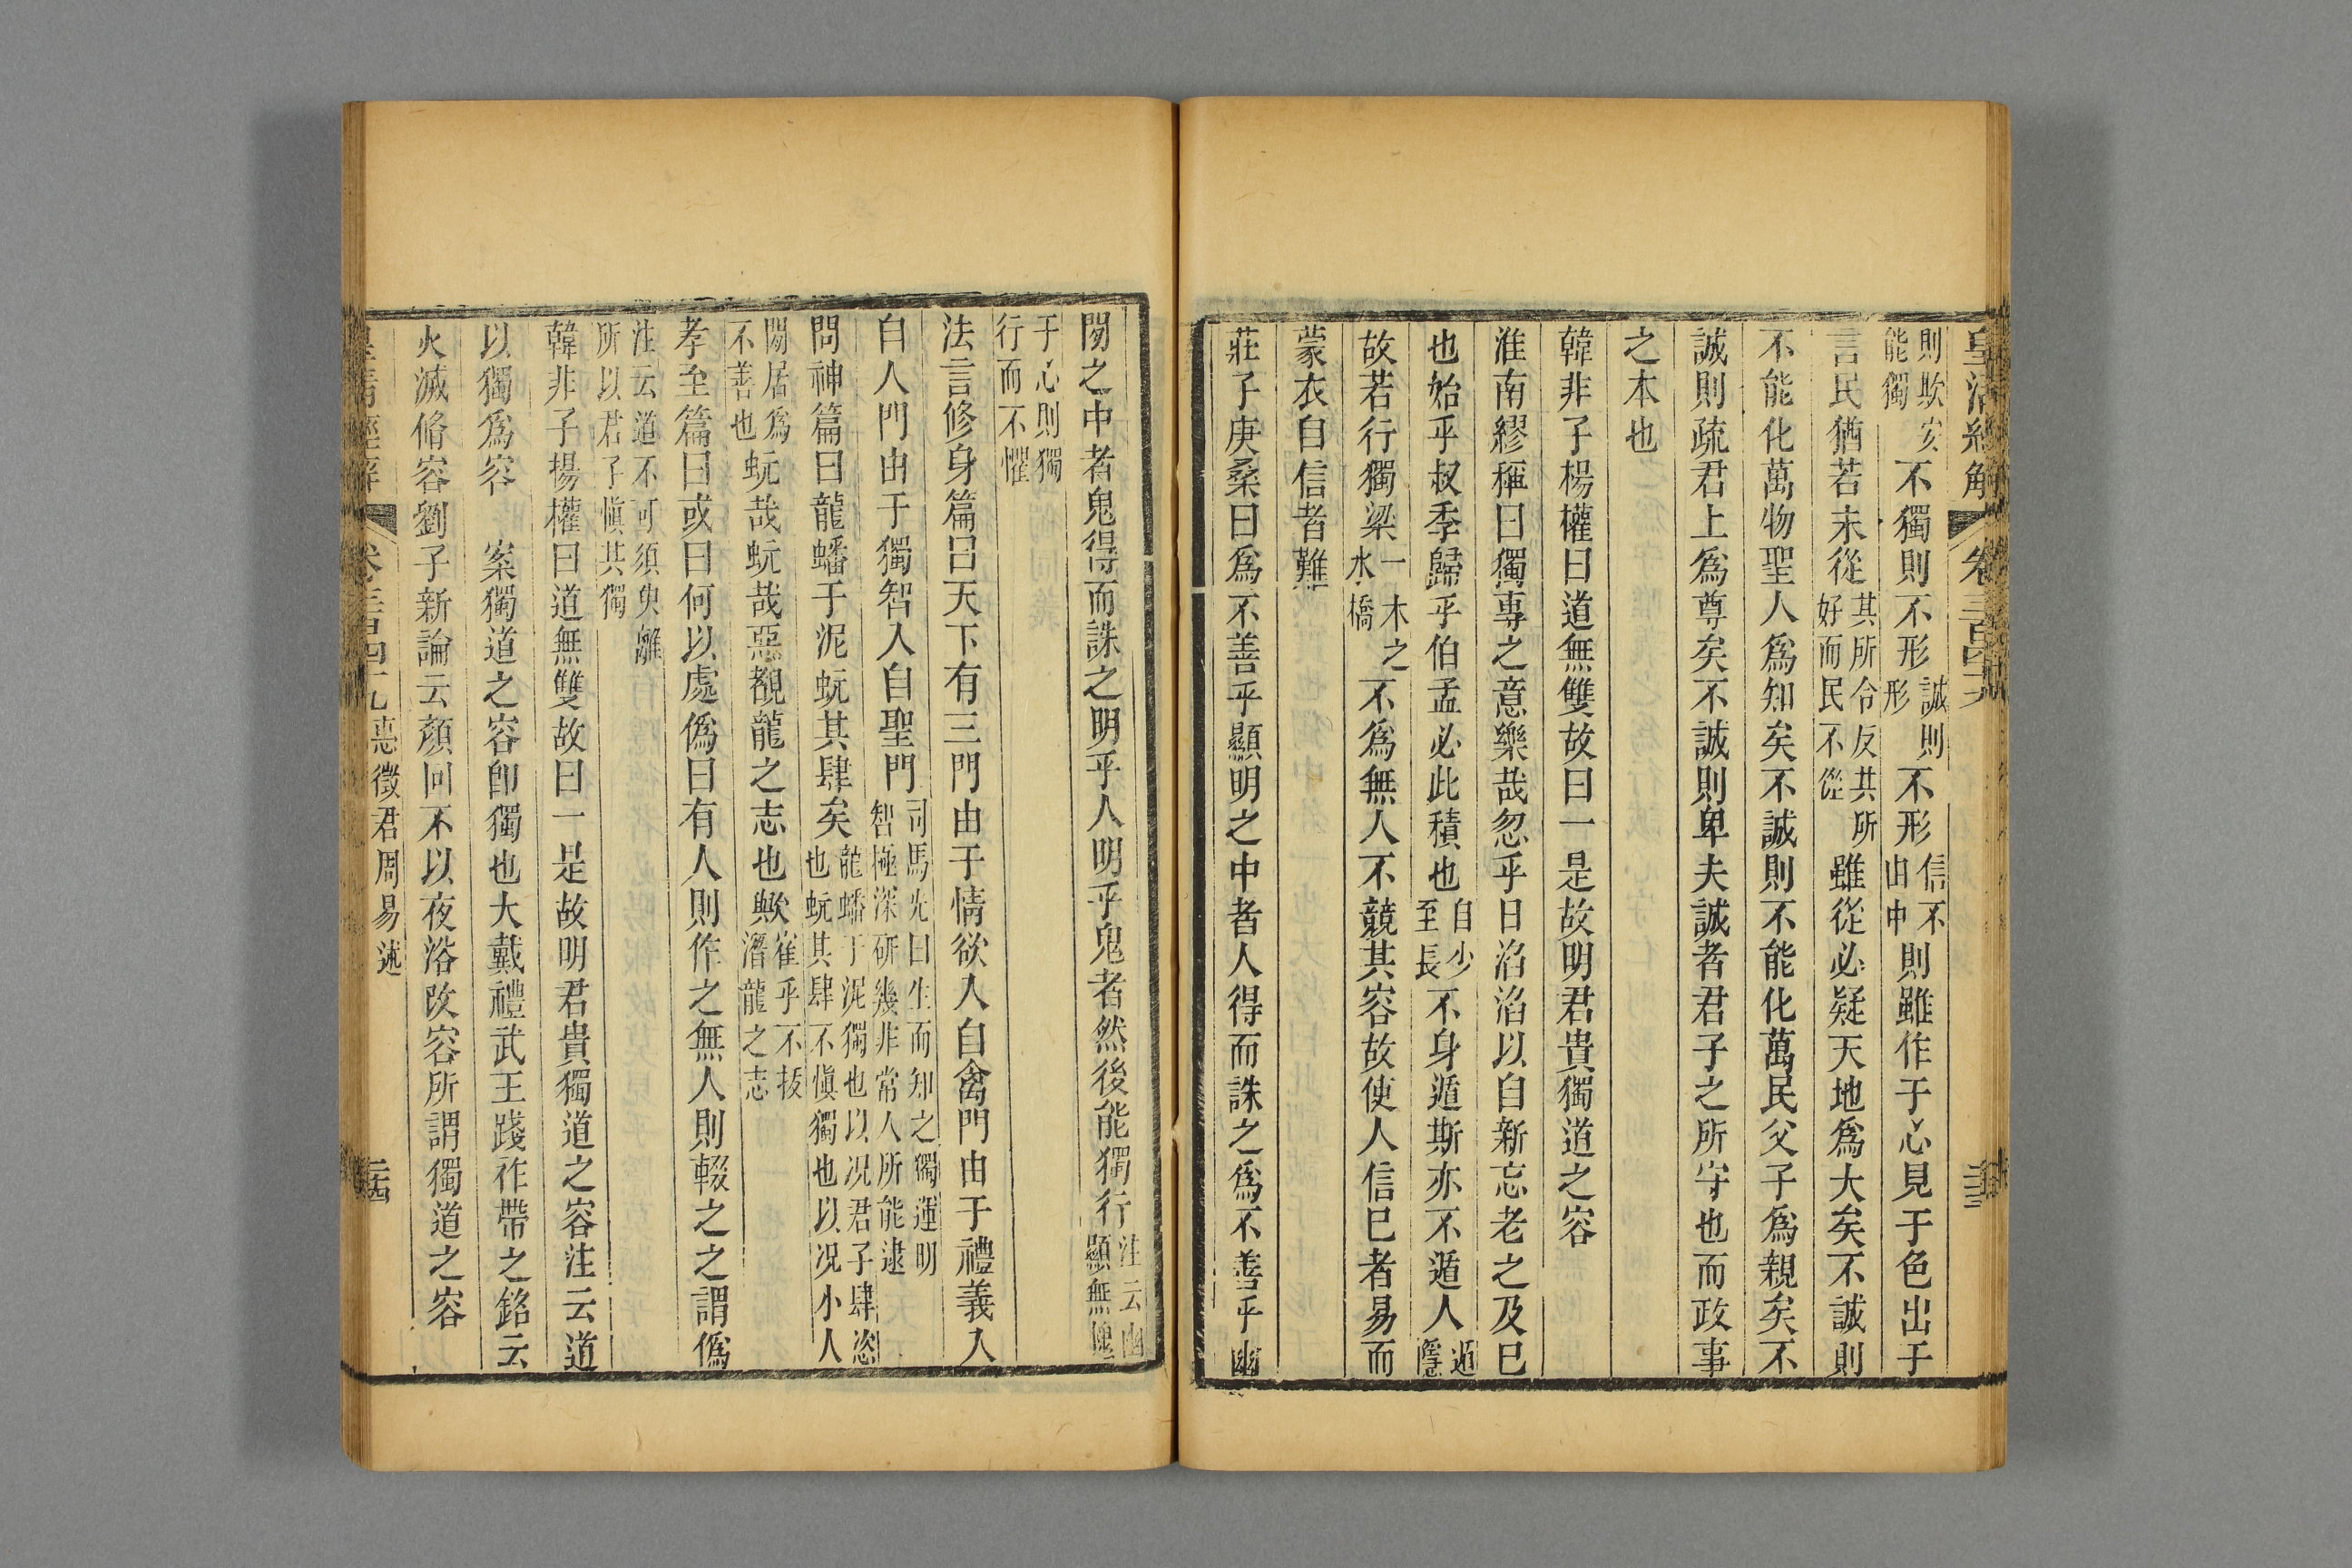 皇清經解 卷三百四十九 二十三
則欺妄能獨不獨則不形誠則形不形信不由中則雖作于心見于色出于
言民猶若未從其所令反其所好而民不從雖從必疑天地爲大矣不誠則
不能化萬物聖人爲知矣不誠則不能化萬民父子爲親矣不
誠則疏君上爲尊矣不誠則卑夫誠者君子之所守也而政事
之本也
韓非子楊權曰道無雙故曰一是故明君貴獨道之容
淮南繆稱曰獨專之意樂哉忽乎日滔滔以自新忘老之及已
也始乎叔季歸乎伯孟必此積也自少至長不身遁斯亦不遁人遁隱
故若行獨梁一木之水橋不爲無人不競其容故使人信已者易而
蒙衣自信者難
莊子庚桑曰爲不善乎顯明之中者人得而誅之爲不善乎幽
閒之中者鬼得而誅之明乎人明乎鬼者然後能獨行注云幽顯無愧
于心則獨行而不懼
法言修身篇曰天下有三門由于情欲入自禽門由于禮義入
自人門由于獨智入自聖門司馬光曰生而知之獨運明智極深研幾非常人所能逮
問神篇曰龍蟠于泥蚖其肆矣龍蟠于泥獨也以况君子肆恣也蚖其肆不愼獨也以况小人
閒居爲不善也蚖哉蚖哉惡覩龍之志也歟崔乎不拔潛龍之志
孝至篇曰或曰何以處僞曰有人則作之無人則輟之之謂僞
注云道不可須臾離所以君子愼其獨
韓非子揚權曰道無雙故曰一是故明君貴獨道之容注云道
以獨爲容 案獨道之容卽獨也大戴禮武王踐祚帶之銘云
火滅脩容劉子新論云顏回不以夜浴改容所謂獨道之容
皇清經解 卷三百四十九 惠徵君周易述 二十四